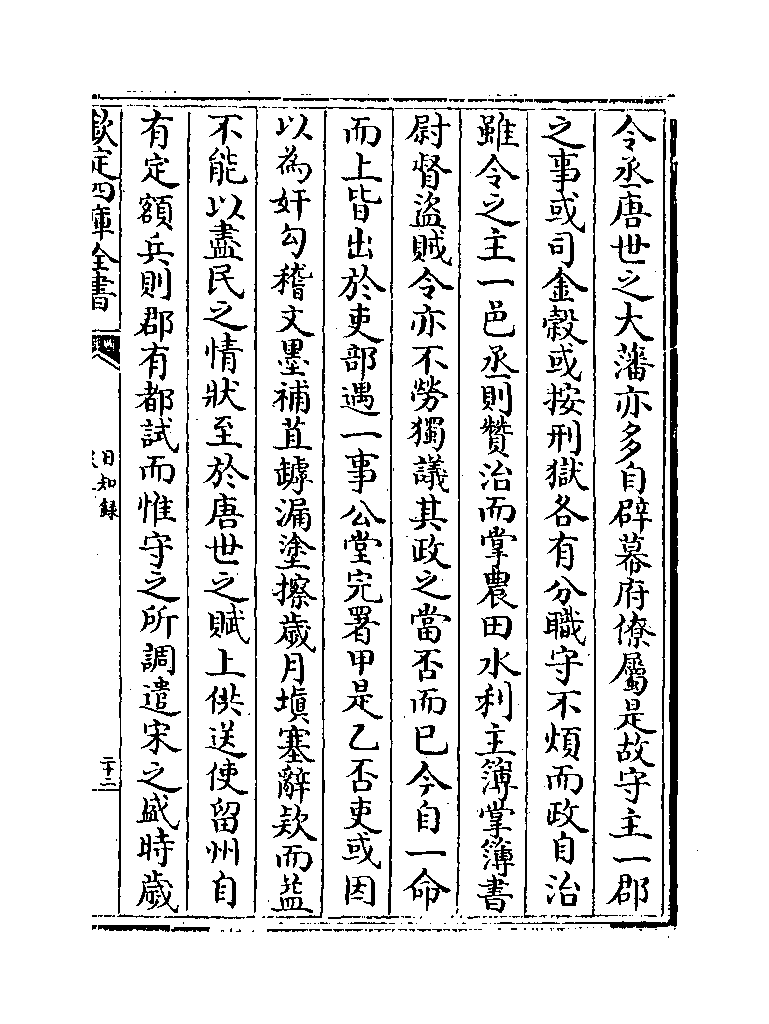 令丞唐世之大藩亦多自辟幕府僚屬是故守主一郡
之事或司金穀或按刑獄各有分職守不煩而政自治
雖令之主一邑丞則贊治而掌農田水利主簿掌簿書
尉督盜賊令亦不勞獨議其政之當否而已今自一命
而上皆出於吏部遇一事公堂完署甲是乙否吏或因
以為奸勾稽文墨補苴罅漏塗擦歲月填塞辭款而益
不能以盡民之情狀至於唐世之賦上供送使留州自
有定額兵則郡有都試而惟守之所調遣宋之盛時歲
欽定四庫全書
日知錄
二十二